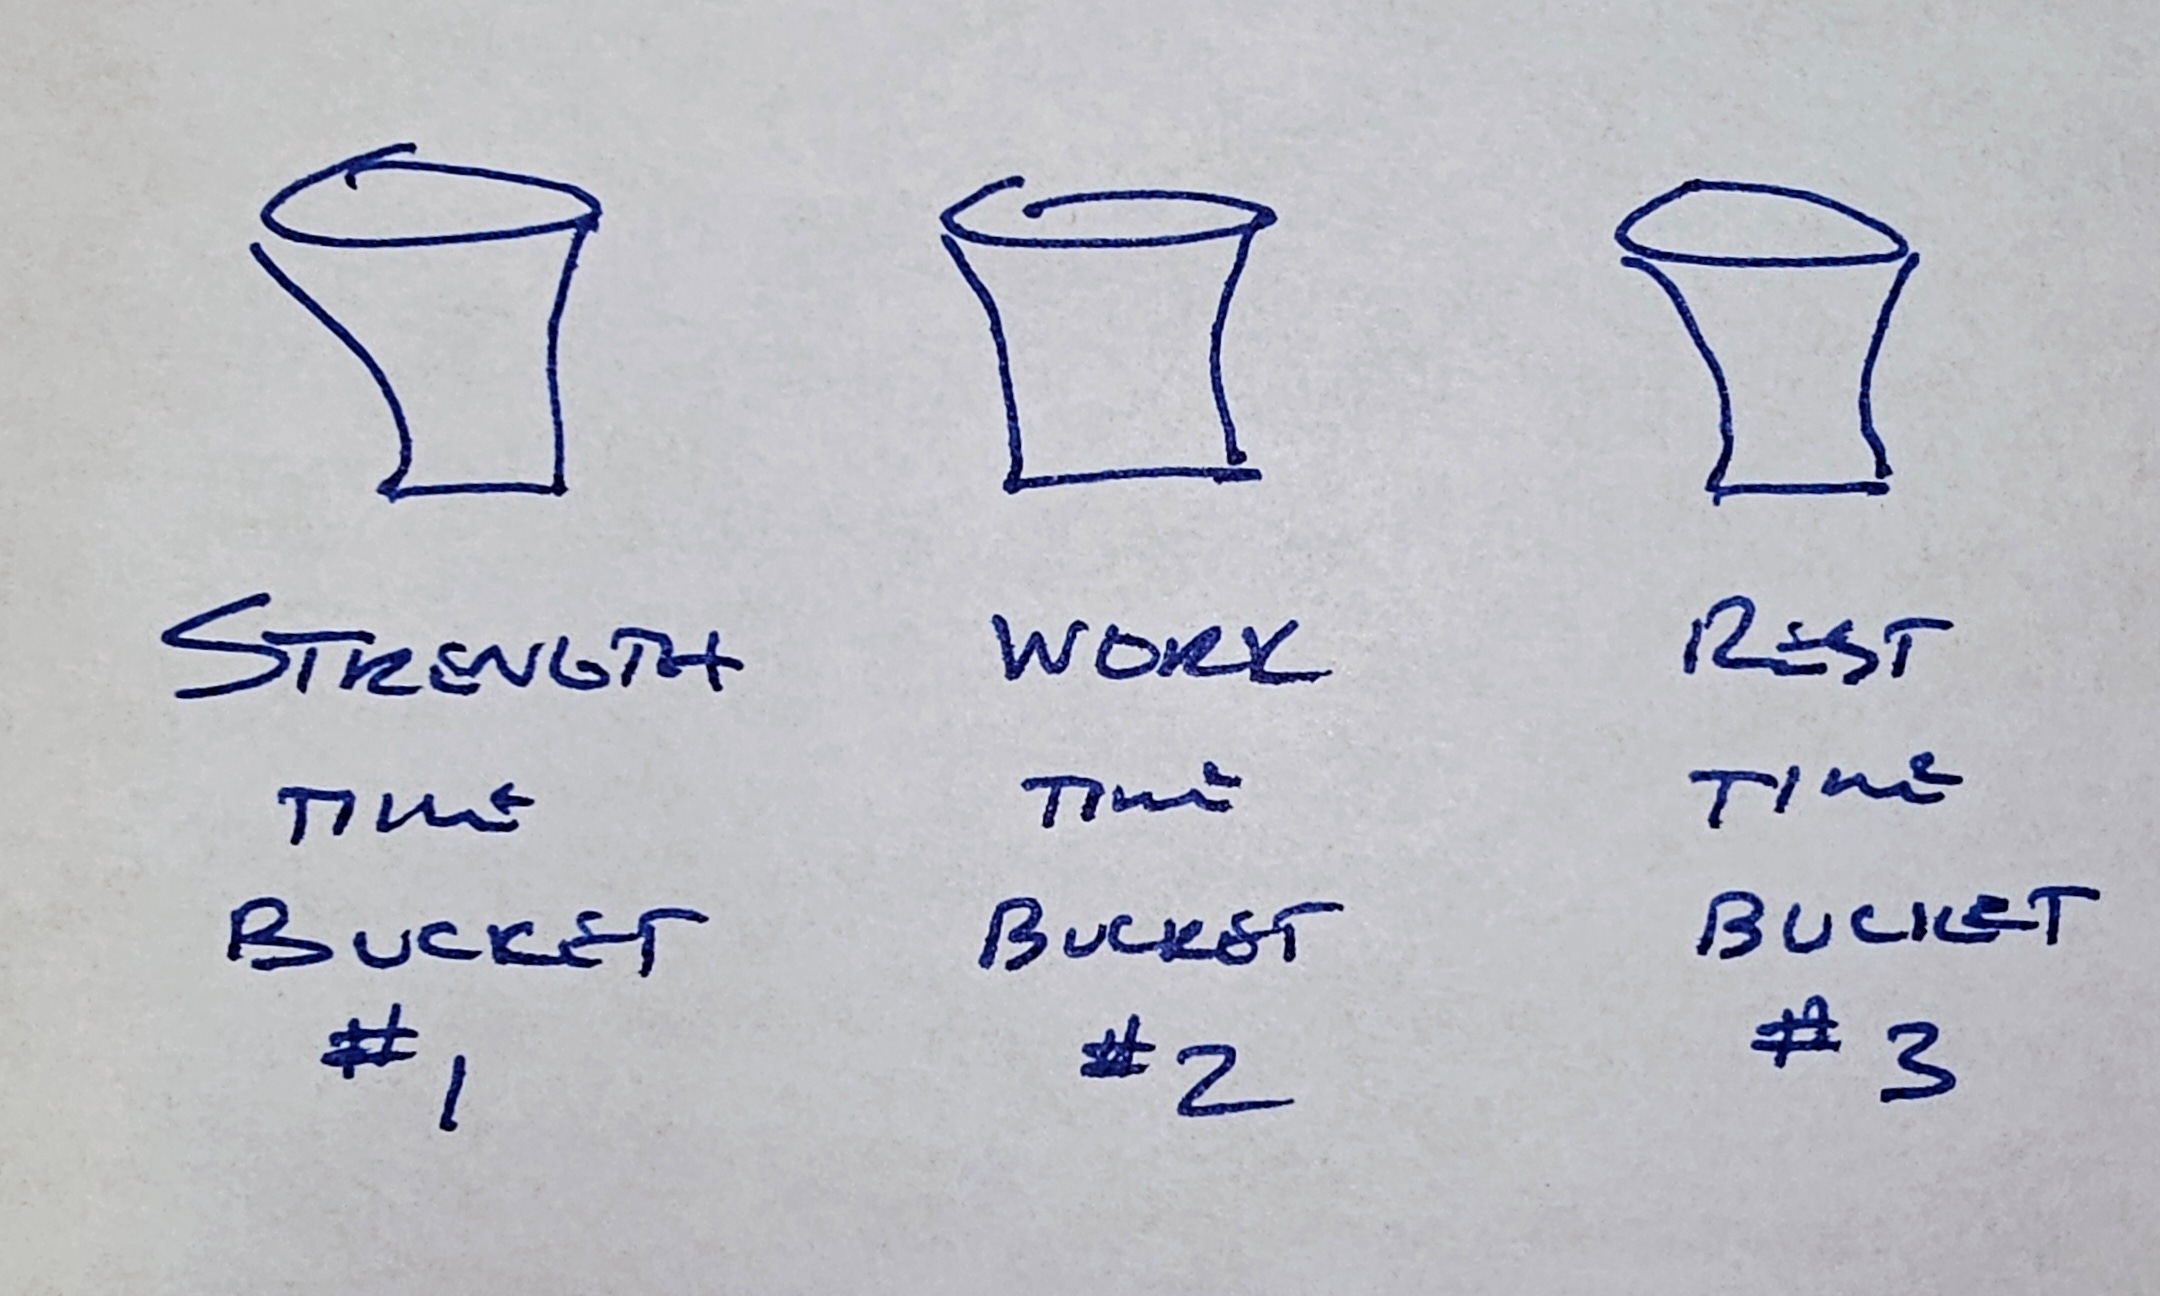 STRENGTH
TIME
BUCKET
#1
WORK
TIME
BUCKET
#2
REST
TIME
BUCKET
#3